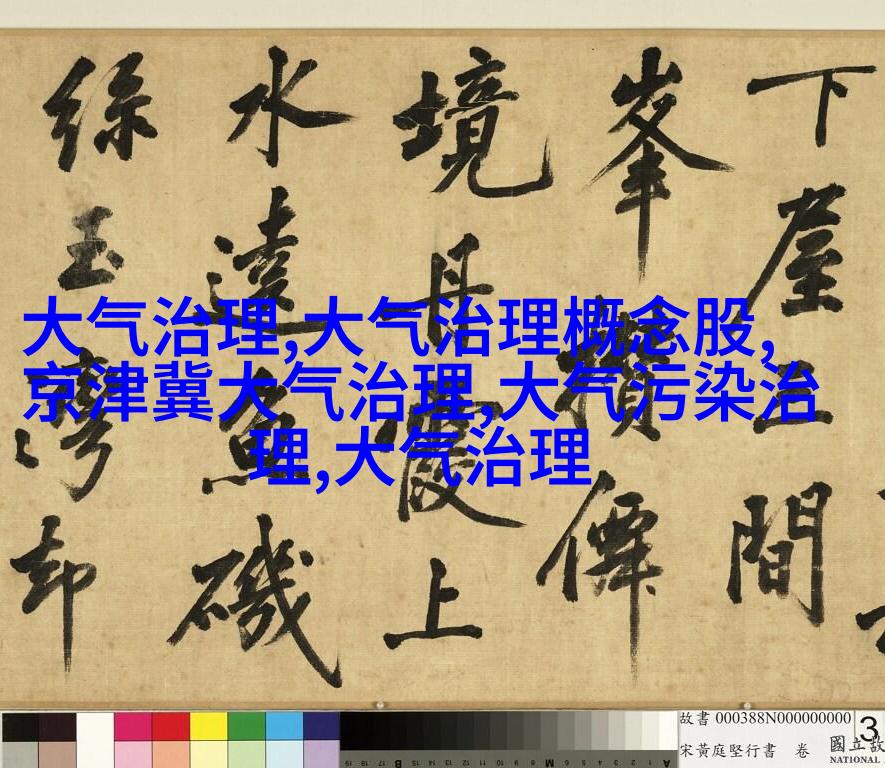 下屋五間
峯攢僊
境丹霞上
水遶魚磯
綠玉灣却
大气治理,大气治理概念股,
京津冀大气治理,大气污染治
理,大气治理
故書 000388N000000000
宋黃庭堅行書 卷
3
國立故
NATIONAL